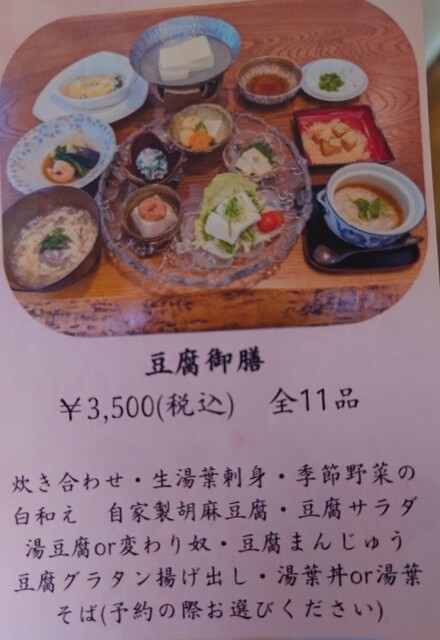 豆腐御膳
￥3,500(税込)　全11品
炊き合わせ・生湯葉刺身・季節野菜の
白和え　自家製胡麻豆腐・豆腐サラダ
湯豆腐or変わり奴・豆腐まんじゅう
豆腐グラタン揚げ出し・湯葉丼or湯葉
そば(予約の際お選びください)